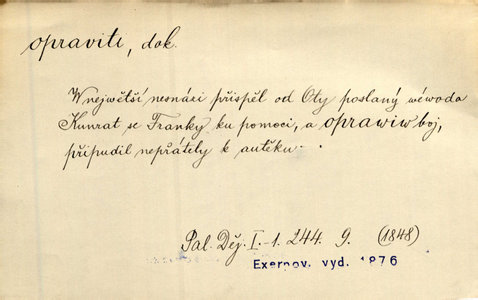 opraviti, dok.
W největší nesnázi přispěl od Oty poslaný wéwoda
Kunrat se Franky ku pomoci, a oprawiw boj,
připudil nepřátely k autěku. .
Pal. Děj. I.-1. 244. 9. (1848)
Exernov. vyd. 1876